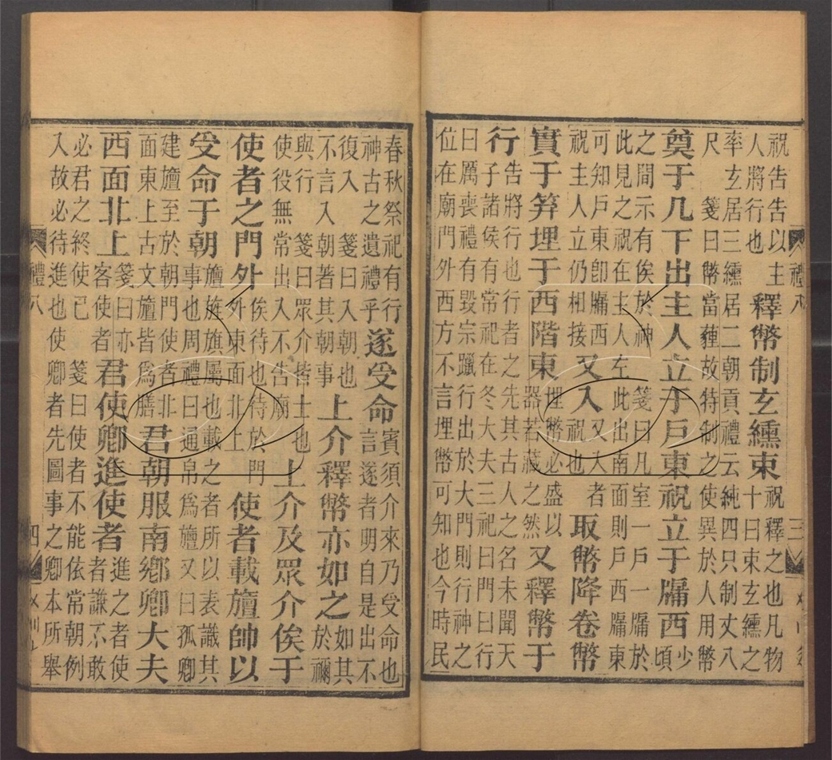 禮八
三
祝告告以主
人將行也
釋幣制玄纁束
祝釋之也凡物
十曰束玄纁之
率玄居三纁居二朝貢禮云純四只制丈八
尺　箋曰幣當故待制之使異於人用幣
奠于几下出主人立于戶東祝立于牖西
少
頃
之間示有俟於神　箋曰凡室一戶一牖於
此見之祝在主人左此出南面則戶西牖東
可知戶東卽牖西
祝主人立仍相接
又入
又入者
祝也
取幣降卷幣
實于筭埋于西階東
埋幣必盛以
器若藏之然
又釋幣于
行
告將行也行者之先其古人之名未聞天
子諸侯有常祀在冬大夫三祀曰門曰行
曰厲喪禮有毀宗躐行出於大門則行神之
位在廟門外西方不言埋幣可知也今時民
春秋祭祀有行
神古之遺禮乎
遂受命
賓須介來乃受命也
言遂者明自是出不
復入　箋曰入朝也
不言入朝著其朝事
上介釋幣亦如之
如其
於禰
與行　箋曰眾介皆士也
使役無常出入不告廟
上介及眾介俟于
使者之門外
俟待也待於門
外東面北上
使者載旜帥以
受命于朝
旜旌旗屬也載之者所以表識其
事也周禮曰通帛爲旜又曰孤卿
建旜至於朝門使者北
面東上古文旜皆爲膳
君朝服南鄉卿大夫
西面北上
箋曰亦
客使者
君使卿進使者
進之者使
者謙不敢
必君之終使已　箋曰使者不能依常朝例
入故必待進也使卿者先圖事之卿本所舉
禮八
四